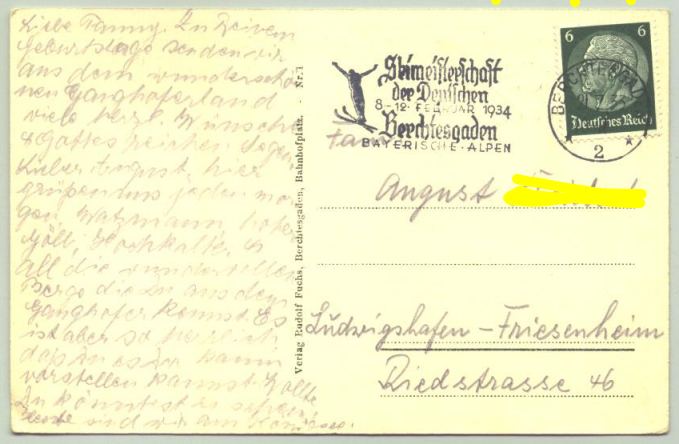 Liebe Fanny. Zu Deinem
Geburtstage senden wir
aus dem wunderschö
nen Ganghoferland
viele herzl. Wünsche
& Gottes reichen Segen
Lieber August, hier
grüßen uns jeden Mor
gen Watzmann, hoher
Göll, Hochkalter, &
all die wundervollen
Berge die Du aus dem
Ganghofer kennst. Es
ist aber so herrlich,
daß Du es Dir kaum
vorstellen kannst. Wollte
Du könntest es sehen!
Heute sind wir am Königssee.
Verlag Rudolf Fuchs, Berchtesgaden, Bahnhofplatz. - Nr. 1
Skimeisterschaft
der Deutschen
8-12. FEBRUAR 1934
Berchtesgaden
BAYERISCHE-ALPEN
6 6
Deutsches Reich
BERCHTESGADEN
2
August
Ludwigshafen-Friesenheim
Riedstrasse 46